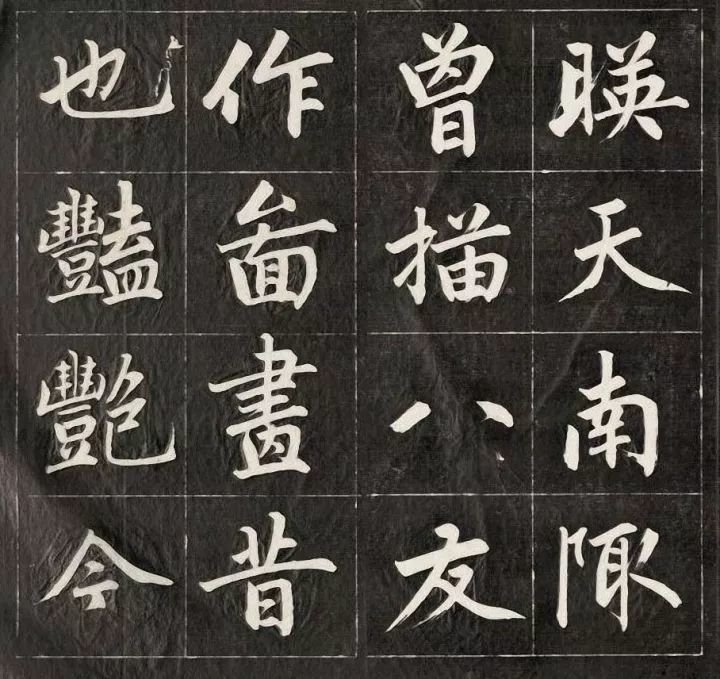 暎天南陬
曾描八友
作畫昔
也豔艷今